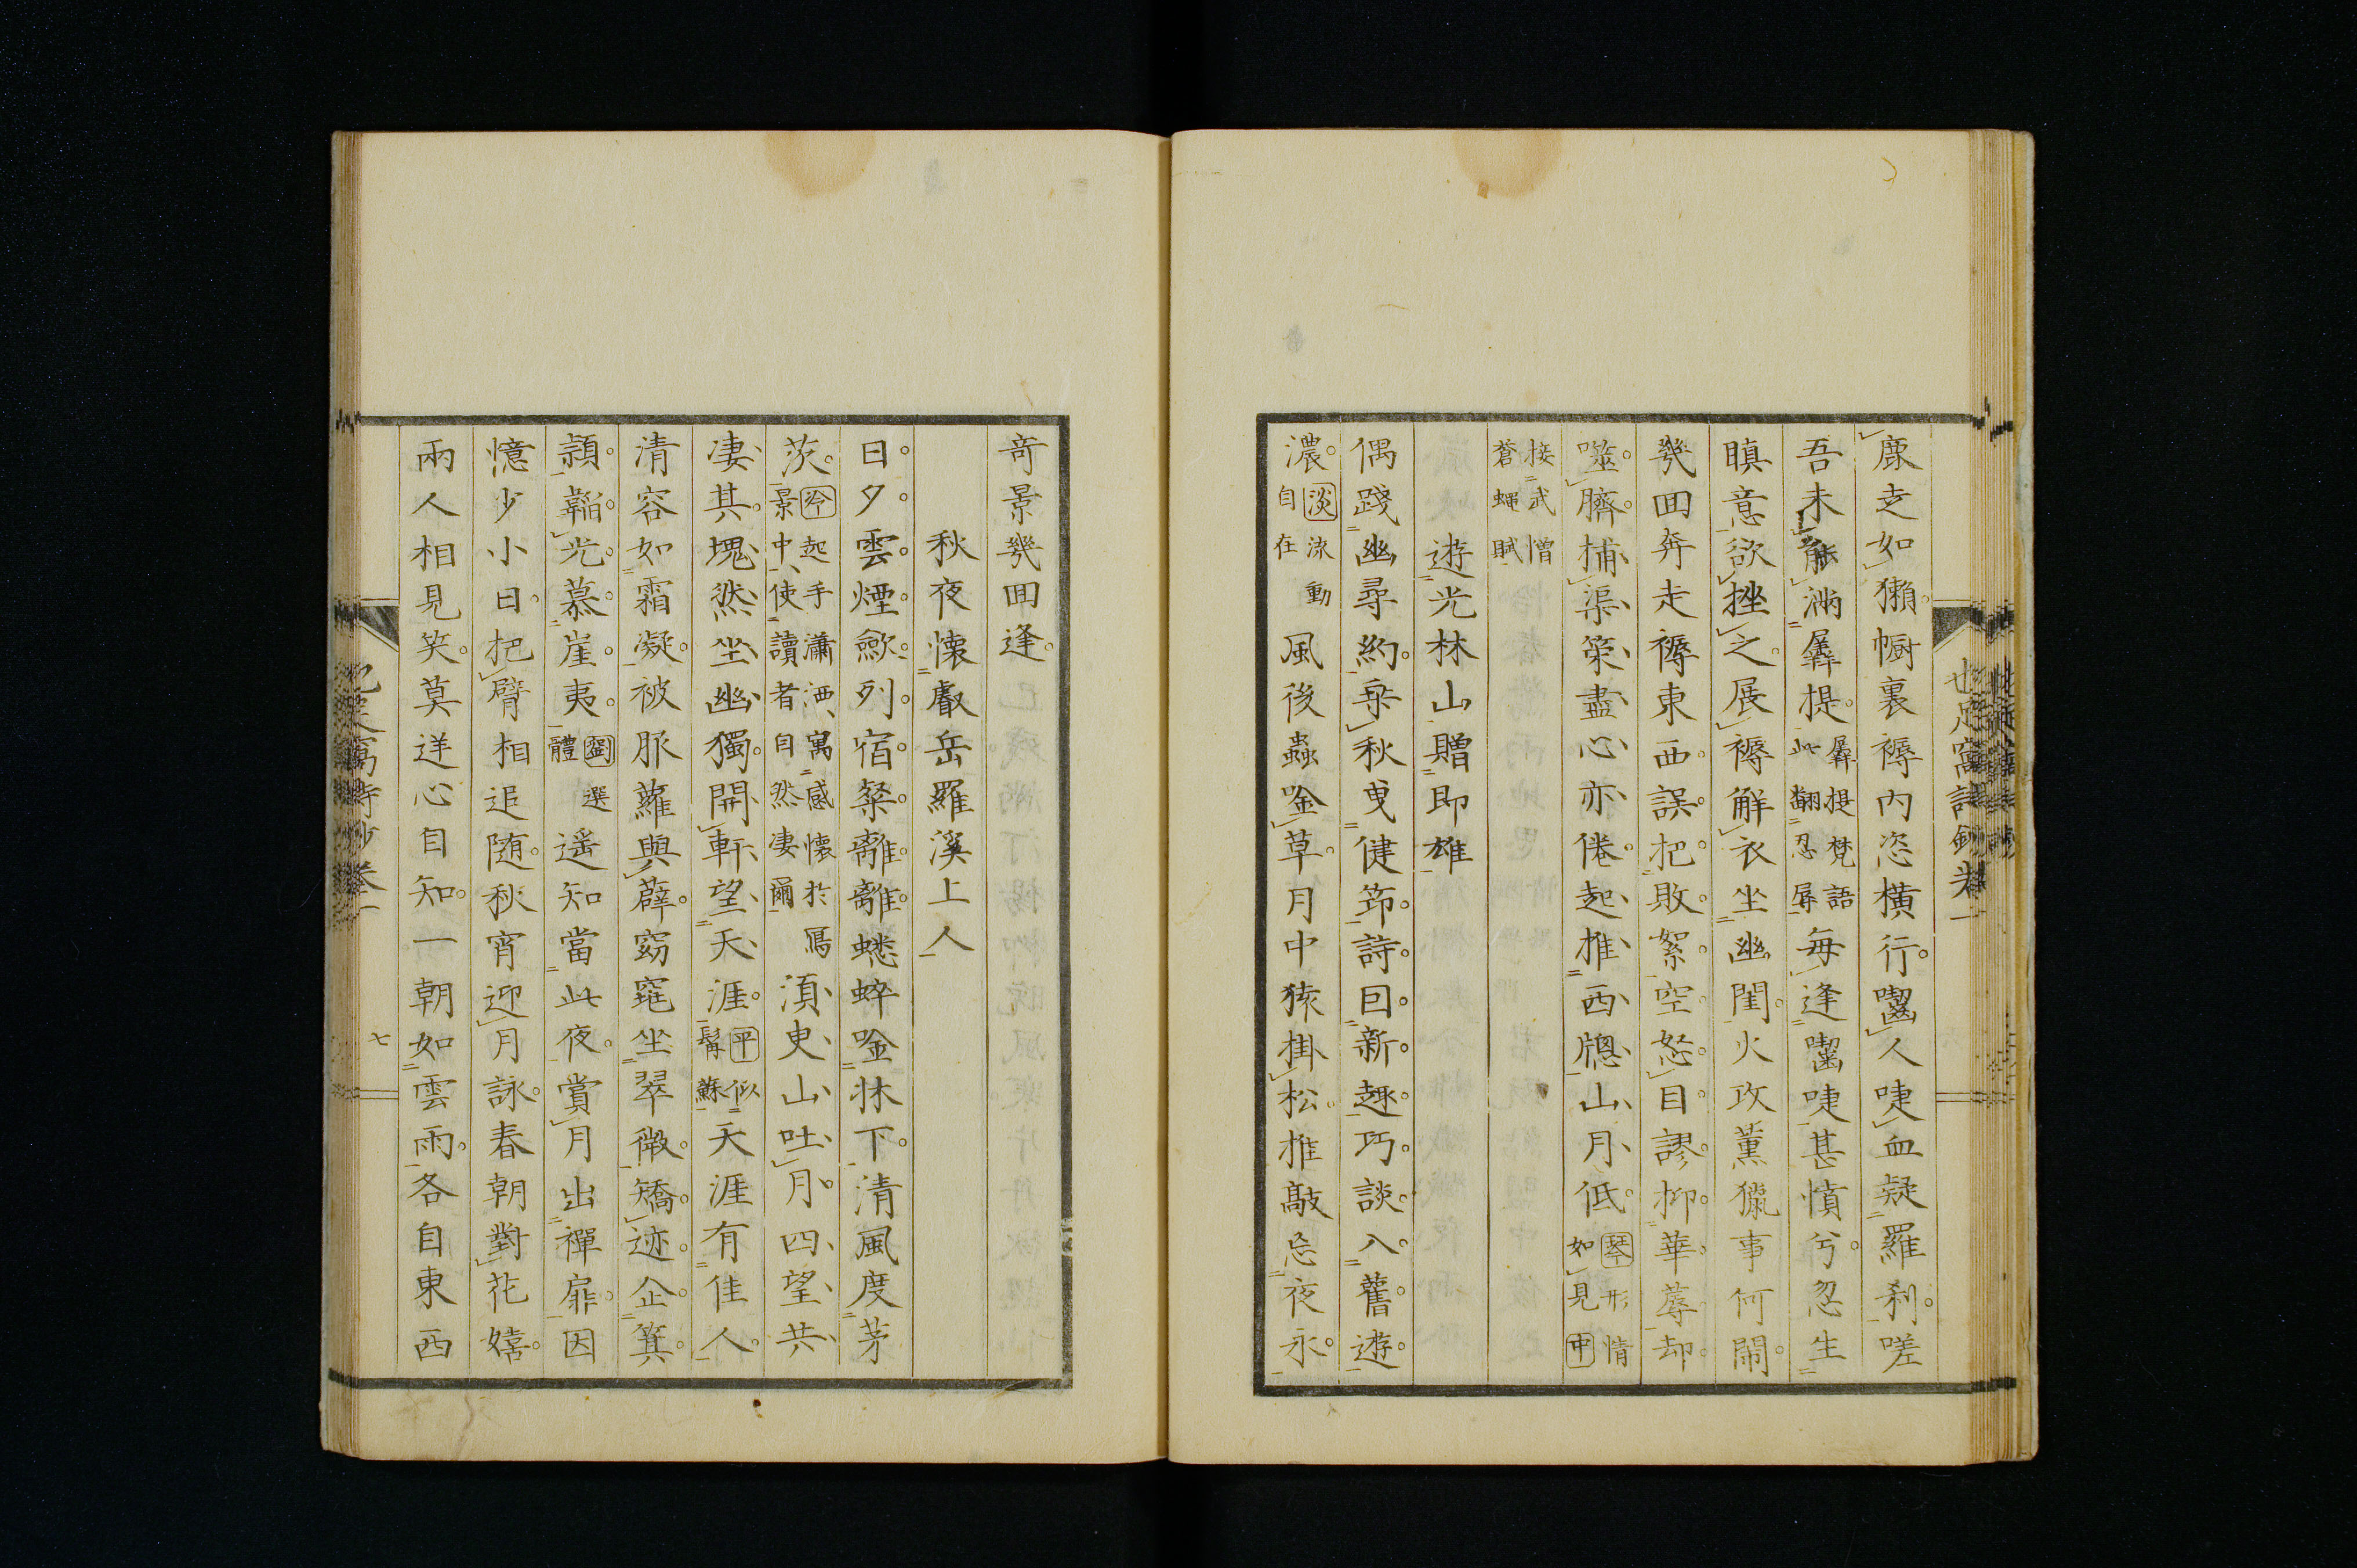 也足窩詩鈔卷一
鹿走如獺㡡裏褥內恣橫行囓人啑血凝羅刹嗟
吾未能滿羼提羼提梵語此翻忍辱每逢囓啑甚憤兮忍生
瞋意欲挫之展褥解衣坐幽閨火攻薰獵事何鬧
幾回奔走褥東西誤把敗絮空怒目謬抑華蓐却
噬臍捕渠策盡心亦倦起推西牕山月低琴形情如見中
接武憎蒼蠅賦
遊光林山贈即雄
偶踐幽尋約乗秋曳健筇詩囙新趣巧談入舊遊
濃淡流動自在風後蟲唫草月中猿掛松推敲忘夜永
奇景幾回逢
秋夜懷叡岳羅溪上人
日夕雲煙歛列宿粲離離蟋蟀唫牀下清風度茅
茨冷起手瀟洒寓感懷於景中使讀者自然凄爾湏臾山吐月四望共
凄其塊然坐幽獨開軒望天涯平似髯蘇天涯有佳人
清容如霜凝被服蘿與薜窈窕坐翠微矯迹企箕
潁韜光慕崖夷劉選體遥知當此夜賞月出禪扉因
憶少小日把臂相追随秋宵迎月詠春朝對花嬉
兩人相見笑莫逆心自知一朝如雲雨各自東西
七